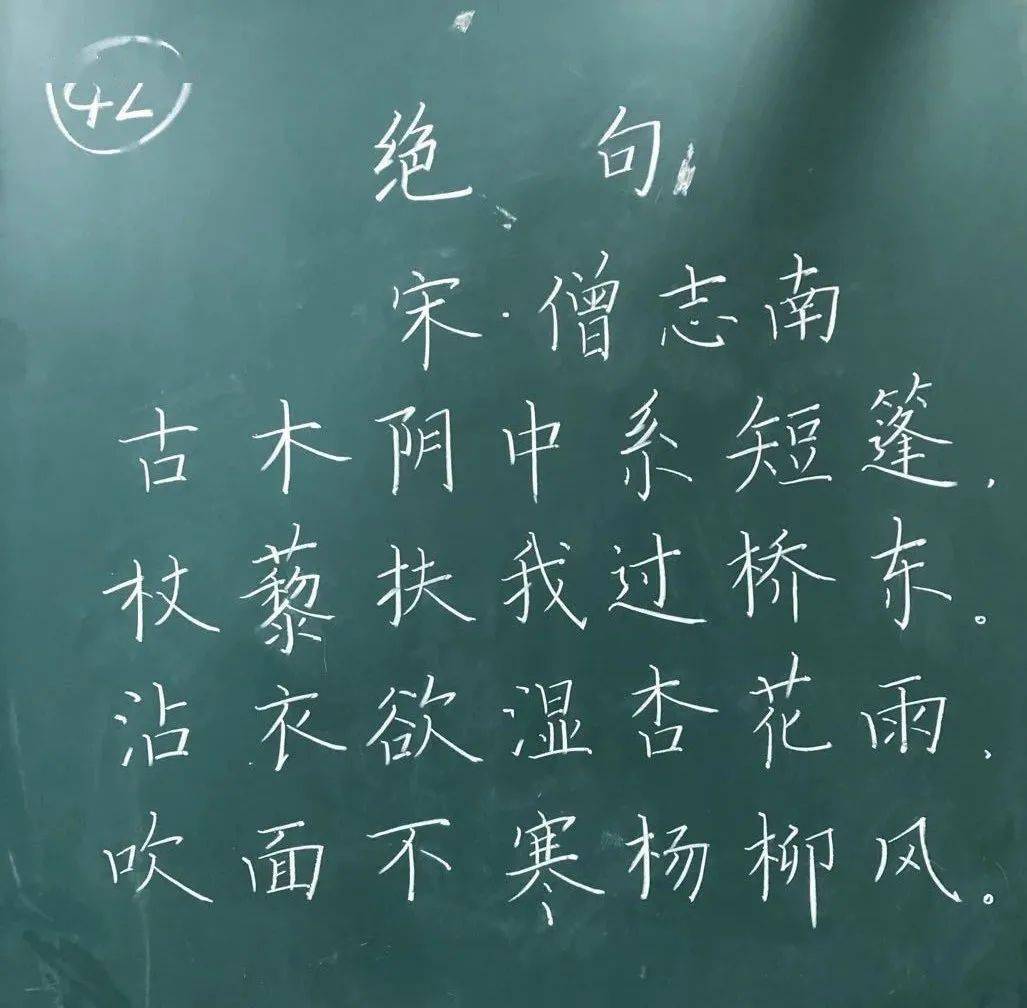 绝句
宋·僧志南
古木阴中系短篷,
杖藜扶我过桥东。
沾衣欲湿杏花雨,
吹面不寒杨柳风。